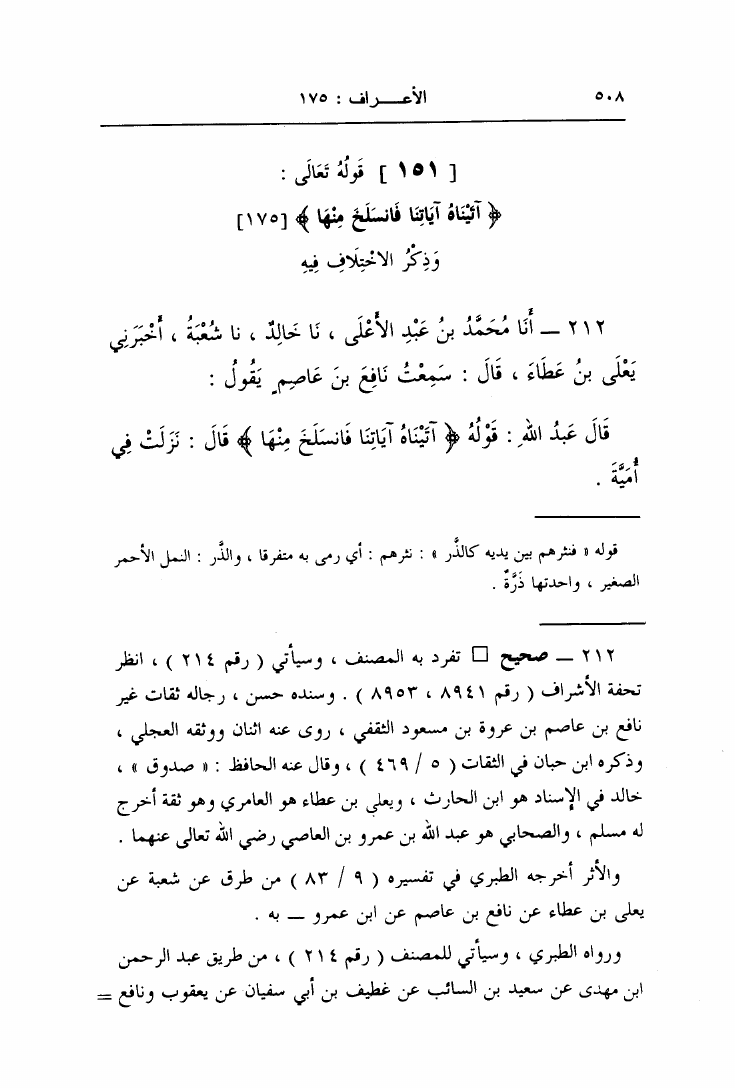 ٥٠٨ الأعـــراف : ١٧٥
[ ١٥١ ] قَوْلُهُ تَعَالَى :
﴿ آتَيْنَاهُ آيَاتِنَا فَانسَلَخَ مِنْهَا ﴾ [١٧٥]
وَذِكْرُ الاخْتِلَافِ فِيهِ
٢١٢ ــ أَنَا مُحَمَّدُ بنُ عَبْدِ الأَعْلَى ، نَا خَالِدٌ ، نا شُعْبَةُ ، أَخْبَرَنِي
يَعْلَى بنُ عَطَاءَ ، قَالَ : سَمِعْتُ نَافِعَ بنَ عَاصِمٍ يَقُولُ :
قَالَ عَبدُ اللهِ : قَوْلُهُ ﴿ آتَيْنَاهُ آيَاتِنَا فَانسَلَخَ مِنْهَا ﴾ قَالَ : نَزَلَتْ فِي
أُمَيَّةَ .
قوله « فنثرهم بين يديه كالذَّر » : نثرهم : أي رمى به متفرقا ، والذَّر : النمل الأحمر
الصغير ، واحدتها ذَرَّةٌ .
٢١٢ ــ صحيح □ تفرد به المصنف ، وسيأتي ( رقم ٢١٤ ) ، انظر
تحفة الأشراف ( رقم ٨٩٤١ ، ٨٩٥٣ ) . وسنده حسن ، رجاله ثقات غير
نافع بن عاصم بن عروة بن مسعود الثقفي ، روى عنه اثنان ووثقه العجلي ،
وذكره ابن حبان في الثقات ( ٥ / ٤٦٩ ) ، وقال عنه الحافظ : « صدوق » ،
خالد في الإسناد هو ابن الحارث ، ويعلي بن عطاء هو العامري وهو ثقة أخرج
له مسلم ، والصحابي هو عبد الله بن عمرو بن العاصي رضي الله تعالى عنهما .
والأثر أخرجه الطبري في تفسيره ( ٩ / ٨٣ ) من طرق عن شعبة عن
يعلى بن عطاء عن نافع بن عاصم عن ابن عمرو ــ به .
ورواه الطبري ، وسيأتي للمصنف ( رقم ٢١٤ ) ، من طريق عبد الرحمن
ابن مهدى عن سعيد بن السائب عن غطيف بن أبي سفيان عن يعقوب ونافع =